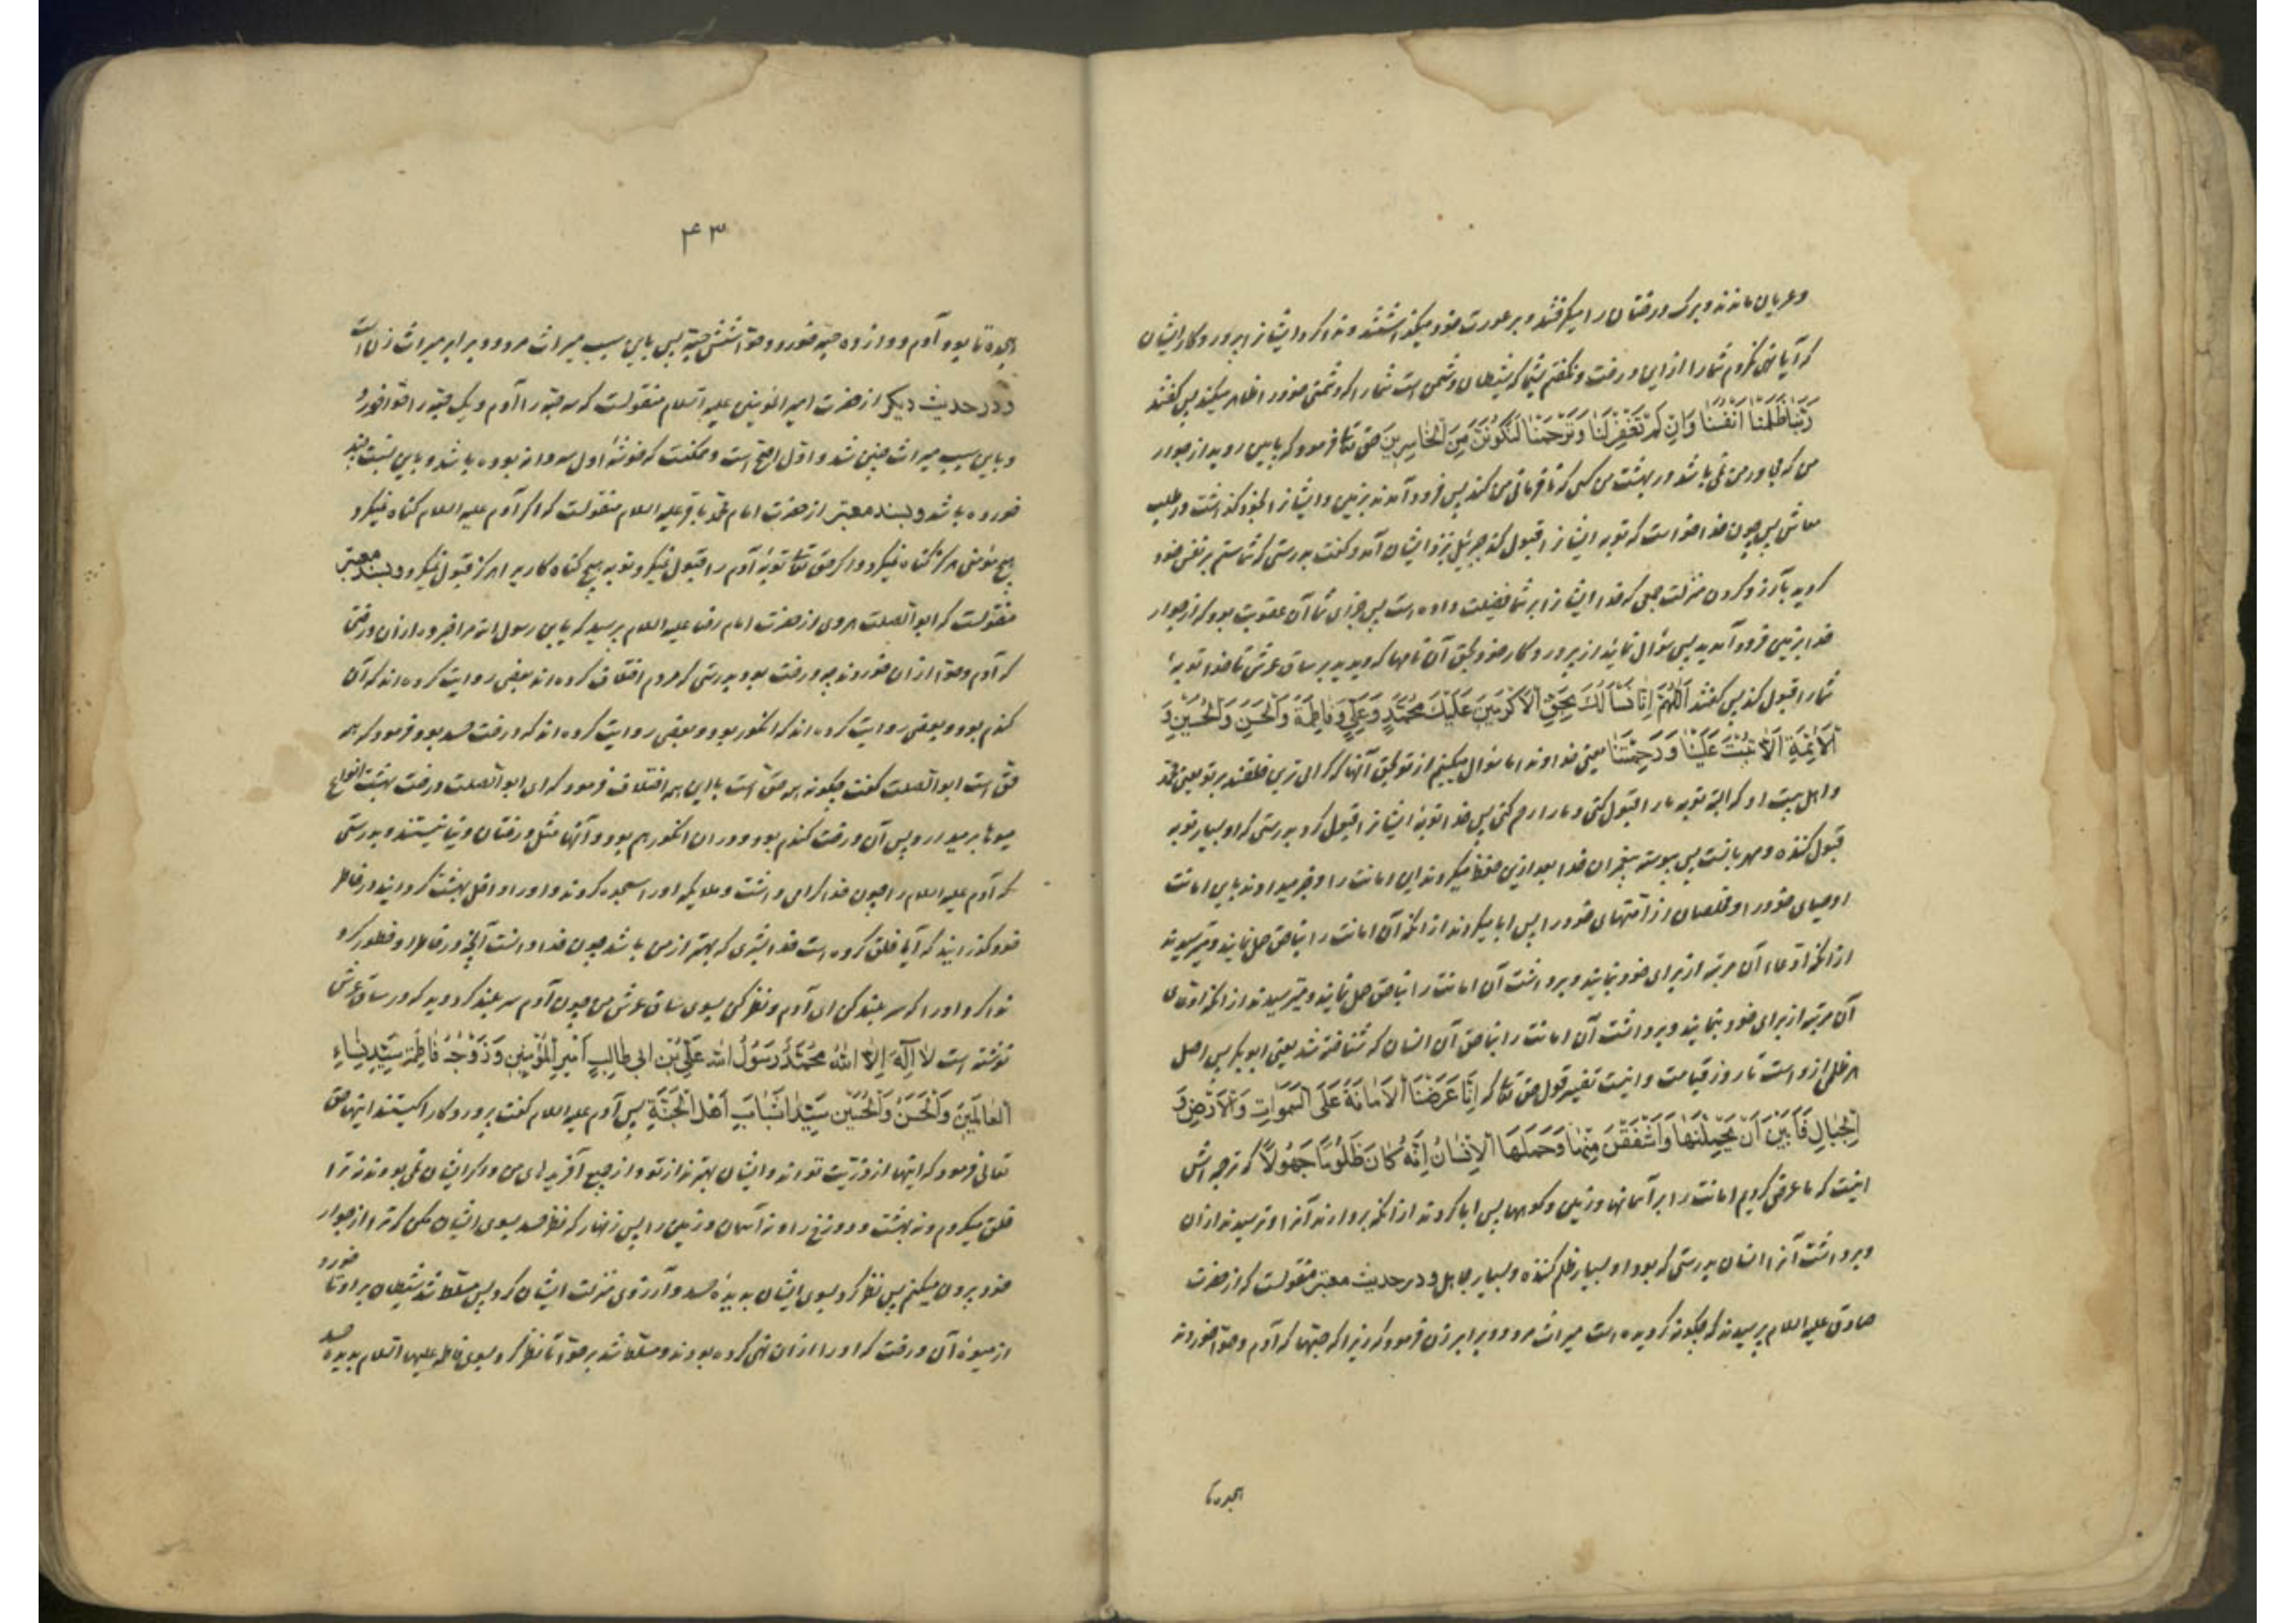 وعریان ماندند و برک درختان را میکرفتند و بر عورت خود میکذاشتند و ندا کرد ایشانرا پروردکار ایشان
که آیا نهی نکردم شما را از این درخت و نکفتم بشما که شیطان دشمن است شما را که دشمنی خود را ظاهر میکند پس کفتند
رَبَّنَا ظَلَمْنَا اَنْفُسَنَا وَاِنْ لَمْ تَغْفِرْ لَنَا وَتَرْحَمْنَا لَنَكُونَنَّ مِنَ الْخَاسِرِينَ حق تعا فرمود که پایین روید از جوار
من که مجاور من نمی باشد در بهشت من کسی که نافرمانی من کند پس فرود آمدند بزمین و ایشانرا بخود کذاشت در طلب
معاش پس چون خدا خواست که توبه ایشانرا قبول کند جبرئیل نزد ایشان آمد و کفت بدرستی که شما ستم بر نفس خود
کردید بآرزو کردن منزلت جمعی که خدا ایشانرا بر شما فضیلت داده است پس جزای شما آن عقوبت بود که از جوار
خدا بزمین فرود آمدید پس سؤال نمائید از پروردکار خود بحق آن نامها که دیدید بر ساق عرش تا خدا توبهٔ
شما را قبول کند پس کفتند اَللّٰهُمَّ اِنَّا نَسْأَلُكَ بِحَقِّ الْاَكْرَمِينَ عَلَيْكَ مُحَمَّدٍ وَعَلِيٍّ وَفَاطِمَةَ وَالْحَسَنِ وَالْحُسَيْنِ وَ
الْاَئِمَّةِ اِلَّا تُبْتَ عَلَيْنَا وَرَحِمْتَنَا یعنی خداوندا ما سؤال میکنیم از تو بحق آنها که کرامی ترین خلقند بر تو یعنی محمد
و اهل بیت او که البته توبه ما را قبول کنی و ما را رحم کنی پس خدا توبهٔ ایشانرا قبول کرد بدرستی که او بسیار توبه
قبول کننده و مهربانست پس پیوسته پیغمبران خدا بعد ازین حفظ میکردند این امانت را و خبر میدادند باین امانت
اوصیای خود را و مخلصان از امتهای خود را پس ابا میکردند از آنکه آن امانت را بناحق حمل نمایند و میترسیدند
از آنکه ادعاء آن مرتبه از برای خود نمایند و برداشت آن امانت را بناحق حمل نمایند و میترسیدند از آنکه ادعای
آن مرتبه از برای خود نمایند و برداشت آن امانت را بناحق آن انسان که شناخته شد یعنی ابوبکر پس اصل
هر ظلمی ازو است تا روز قیامت و اینست تفسیر قول حق تعا که اِنَّا عَرَضْنَا الْاَمَانَةَ عَلَى السَّمٰوَاتِ وَالْاَرْضِ وَ
الْجِبَالِ فَاَبَيْنَ اَنْ يَحْمِلْنَهَا وَاَشْفَقْنَ مِنْهَا وَحَمَلَهَا الْاِنْسَانُ اِنَّهُ كَانَ ظَلُومًا جَهُولًا که ترجمه اش
اینست که ما عرض کردیم امانت را بر آسمانها و زمین و کوهها پس ابا کردند از آنکه بردارند آنرا و ترسیدند از آن
و برداشت آنرا انسان بدرستی که بود او بسیار ظلم کننده و بسیار جاهل و در حدیث معتبر منقولست که از حضرت
صادق علیه السلام پرسیدند که چکونه کردیده است میراث مرد دو برابر زن فرمود که زیرا که حبهها که آدم و حوا خوردند
هجده تا
۴۳
هجده تا بود آدم دوازده حبه خورد و حوا شش حبه پس باین سبب میراث مرد دو برابر میراث زنان است
و در حدیث دیکر از حضرت امیر المؤمنین علیه السلام منقولست که سه حبه را آدم و یک حبه را حوا خورد
و باین سبب میراث چنین شد و اول اصح است و ممکنست که خوشهٔ اول سه دانه بوده باشد و باین نسبت چند
خورده باشد و بسند معتبر از حضرت امام محمد باقر علیه السلام منقولست که اکر آدم علیه السلام کناه نمیکرد
هیچ مؤمنی هرکز کناه نمیکرد و اکر حق تعا توبهٔ آدم را قبول نمیکرد توبه هیچ کناه کار را هرکز قبول نمیکرد و بسند معتبر
منقولست که ابوالصلت هروی از حضرت امام رضا علیه السلام پرسید که یابن رسول الله مرا خبر ده از آن درختی
که آدم و حوا از آن خوردند چه درخت بود بدرستی که مردم اختلاف کرده اند بعضی روایت کرده اند که آن
کندم بود و بعضی روایت کرده اند که انکور بود و بعضی روایت کرده اند که درخت حسد بود فرمود که همه
حق است ابوالصلت کفت چکونه همه حق است با این همه اختلاف فرمود که ای ابوالصلت درخت بهشت انواع
میوها بر میدارد پس آن درخت کندم بود و در آن انکور هم بود و آنها مثل درختان دنیا نیستند و بدرستی
که آدم علیه السلام را چون خدا کرامی داشت و ملایکه او را سجده کردند و او را داخل بهشت کردانید در خاطر
خود کذرانید که آیا خلق کرده است خدا بشری که بهتر از من باشد چون خدا دانست آنچه در خاطر او خطور کرد
ندا کرد او را که سر بلند کن ای آدم و نظر کن بسوی ساق عرش من چون آدم سر بلند کرد دید که در ساق عرش
نوشته است لَا اِلٰهَ اِلَّا اللّٰهُ مُحَمَّدٌ رَسُولُ اللّٰهِ عَلِيُّ بْنُ ابی طَالِبٍ اَمِيرُ الْمُؤْمِنِينَ وَزَوْجُهُ فَاطِمَةُ سَيِّدَةُ نِسَاءِ
الْعَالَمِينَ وَالْحَسَنُ وَالْحُسَيْنُ سَيِّدَا شَبَابِ اَهْلِ الْجَنَّةِ پس آدم علیه السلام کفت پروردکارا کیستند اینها حق
تعالی فرمود که اینها از ذریت تواند و ایشان بهترند از تو و از جمیع آفریدهای من و اکر ایشان نمی بودند نه ترا
خلق میکردم و نه بهشت و دوزخ را و نه آسمان و زمین را پس زنهار که نظر حسد بسوی ایشان مکن که ترا از جوار
خود بیرون میکنم پس نظر کرد بسوی ایشان بدیدهٔ حسد و آرزوی منزلت ایشان کرد پس مسلط شد شیطان بر او تا خورد
از میوهٔ آن درخت که او را از آن نهی کرده بودند و مسلط شد بر حوا تا نظر کرد بسوی فاطمه علیها السلام بدیدهٔ حسد